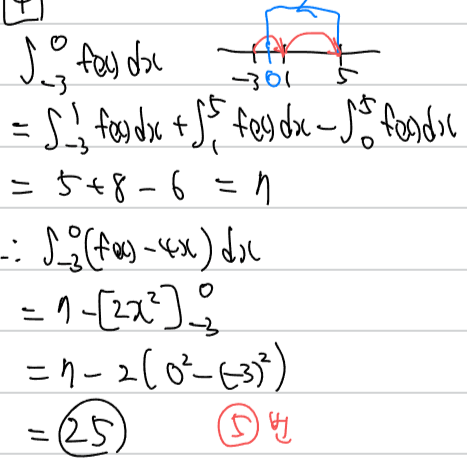 4
∫₋₃⁰ f(x) dx
-3 0 1 5
= ∫₋₃¹ f(x) dx + ∫₁⁵ f(x) dx - ∫₀⁵ f(x) dx
= 5 + 8 - 6 = 7
∴ ∫₋₃⁰ (f(x) - 4x) dx
= 7 - [2x²]₋₃⁰
= 7 - 2(0² - (-3)²)
= 25 ⑤ 번